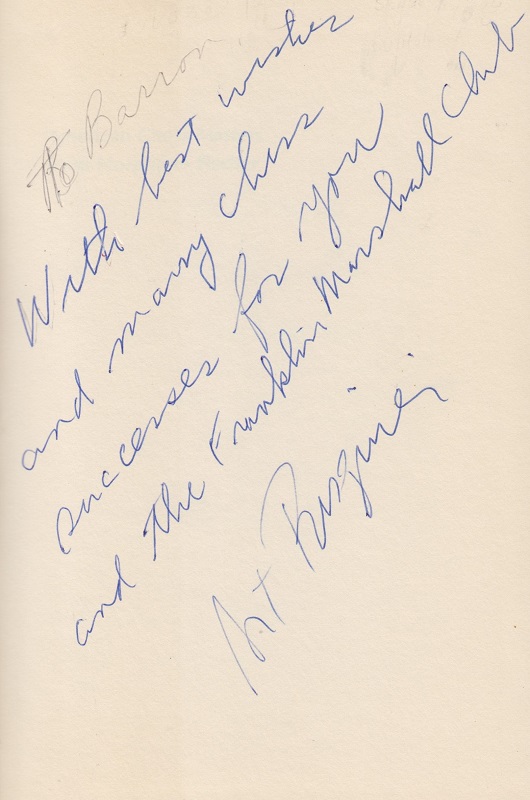 To Barron,
With best wishes
and many chess
successes for you
and the Franklin Marshall Club
Art Bisguier